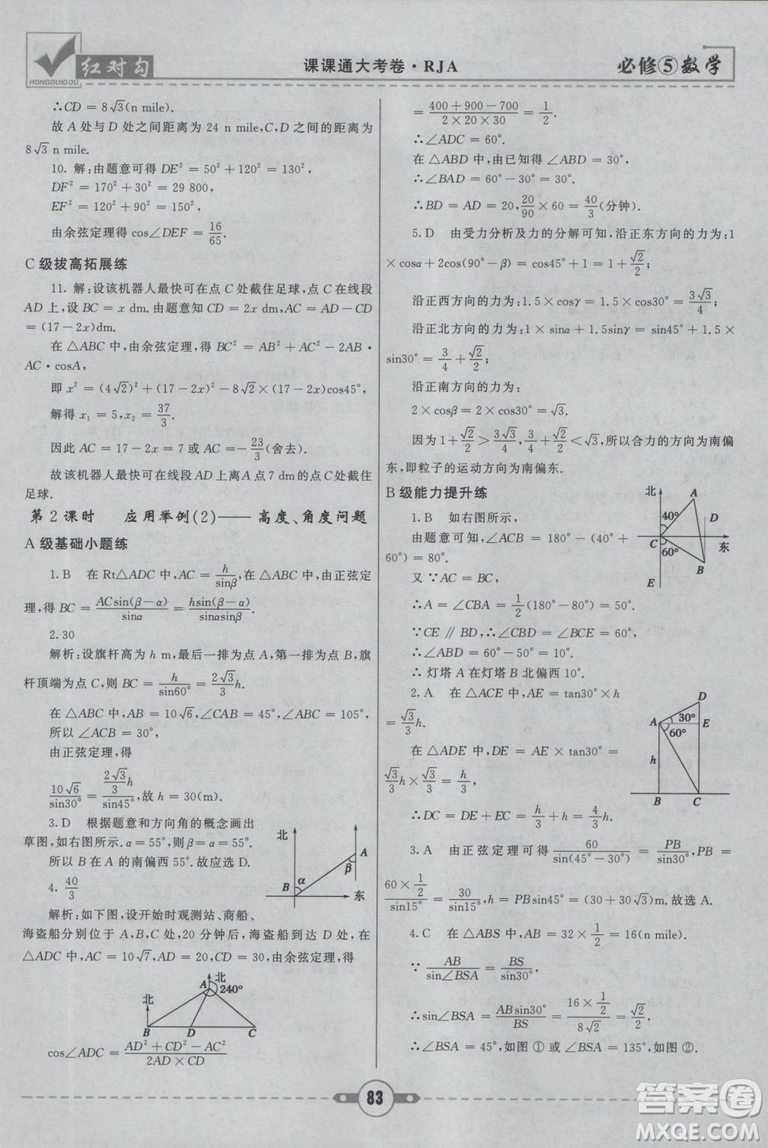 红对勾
HONGDUIGOU
课课通大考卷·RJA
必修⑤数学
∴CD=8√3(n mile).
故 A 处与 D 处之间距离为 24 n mile,C、D 之间的距离为
8√3 n mile.
10. 解:由题意可得 DE²=50²+120²=130²,
DF²=170²+30²=29 800,
EF²=120²+90²=150²,
由余弦定理得 cos∠DEF=16/65.
C 级拔高拓展练
11. 解:设该机器人最快可在点 C 处截住足球,点 C 在线段
AD 上,设 BC=x dm.由题意知 CD=2x dm,AC=AD-CD
=(17-2x) dm.
在△ABC 中,由余弦定理得 BC²=AB²+AC²-2AB·AC
·cosA,
即 x²=(4√2)²+(17-2x)²-8√2×(17-2x)cos45°,
解得 x₁=5,x₂=37/3.
因此 AC=17-2x=7 或 AC=-23/3(舍去).
故该机器人最快可在线段 AD 上离 A 点 7 dm 的点 C 处截住
足球.
第 2 课时 应用举例(2)——高度、角度问题
A 级基础小题练
1.B 在 Rt△ADC 中,AC=h/sinβ,在△ABC 中,由正弦定
理,得 BC=ACsin(β-α)/sinα=hsin(β-α)/sinα·sinβ.
2.30
解析:设旗杆高为 h m,最后一排为点 A,第一排为点 B,旗
杆顶端为点 C,则 BC=h/sin60°=2√3/3 h.
在△ABC 中,AB=10√6,∠CAB=45°,∠ABC=105°,
所以∠ACB=30°,
由正弦定理,得
10√6/sin30°=(2√3/3 h)/sin45°,故 h=30(m).
3.D 根据题意和方向角的概念画出
草图,如右图所示.α=55°,则β=α=55°.
所以 B 在 A 的南偏西 55°.故应选 D.
北
A
β
B
α
东
4. 40/3
解析:如下图,设开始时观测站、商船、
海盗船分别位于 A、B、C 处,20 分钟后,海盗船到达 D 处,在
△ADC 中,AC=10√7,AD=20,CD=30,由余弦定理得
北
A
240°
北
B
D
C
cos∠ADC=(AD²+CD²-AC²)/(2AD×CD)
=(400+900-700)/(2×20×30)=1/2.
∴∠ADC=60°.
在△ABD 中,由已知得∠ABD=30°.
∠BAD=60°-30°=30°.
∴BD=AD=20,20/90×60=40/3(分钟).
5.D 由受力分析及力的分解可知,沿正东方向的力为:1
×cosα+2cos(90°-β)=cos45°+1=1+√2/2;
沿正西方向的力为:1.5×cosγ=1.5×cos30°=3√3/4;
沿正北方向的力为:1×sinα+1.5sinγ=sin45°+1.5×
sin30°=3/4+√2/2;
沿正南方向的力为:
2×cosβ=2×cos30°=√3.
因为 1+√2/2>3√3/4,√3>3/4+√2/2,所以合力的方向为南偏
东,即粒子的运动方向为南偏东.
B 级能力提升练
1.B 如右图所示,
由题意可知,∠ACB=180°-(40°+
60°)=80°.
又∵AC=BC,
∴∠A=∠CBA=1/2(180°-80°)=50°.
∵CE∥BD,∴∠CBD=∠BCE=60°,
∴灯塔 A 在灯塔 B 北偏西 10°.
北
A
40°
D
C
东
60°
B
E
2.A 在△ACE 中,AE=tan30°×h
=√3/3 h.
在△ADE 中,DE=AE×tan30°=
√3/3 h×√3/3=h/3,
∴DC=DE+EC=h/3+h=4/3 h.
D
A
30°
E
60°
h
B
C
3.A 由正弦定理可得 60/sin(45°-30°)=PB/sin30°,PB=
(60×1/2)/sin15°=30/sin15°,h=PBsin45°=(30+30√3)m,故选 A.
4.C 在△ABS 中,AB=32×1/2=16(n mile).
∵AB/sin∠BSA=BS/sin30°,
∴sin∠BSA=ABsin30°/BS=(16×1/2)/8√2=√2/2.
∴∠BSA=45°,如图①或∠BSA=135°,如图②.
83
答案卷
MXQE.COM